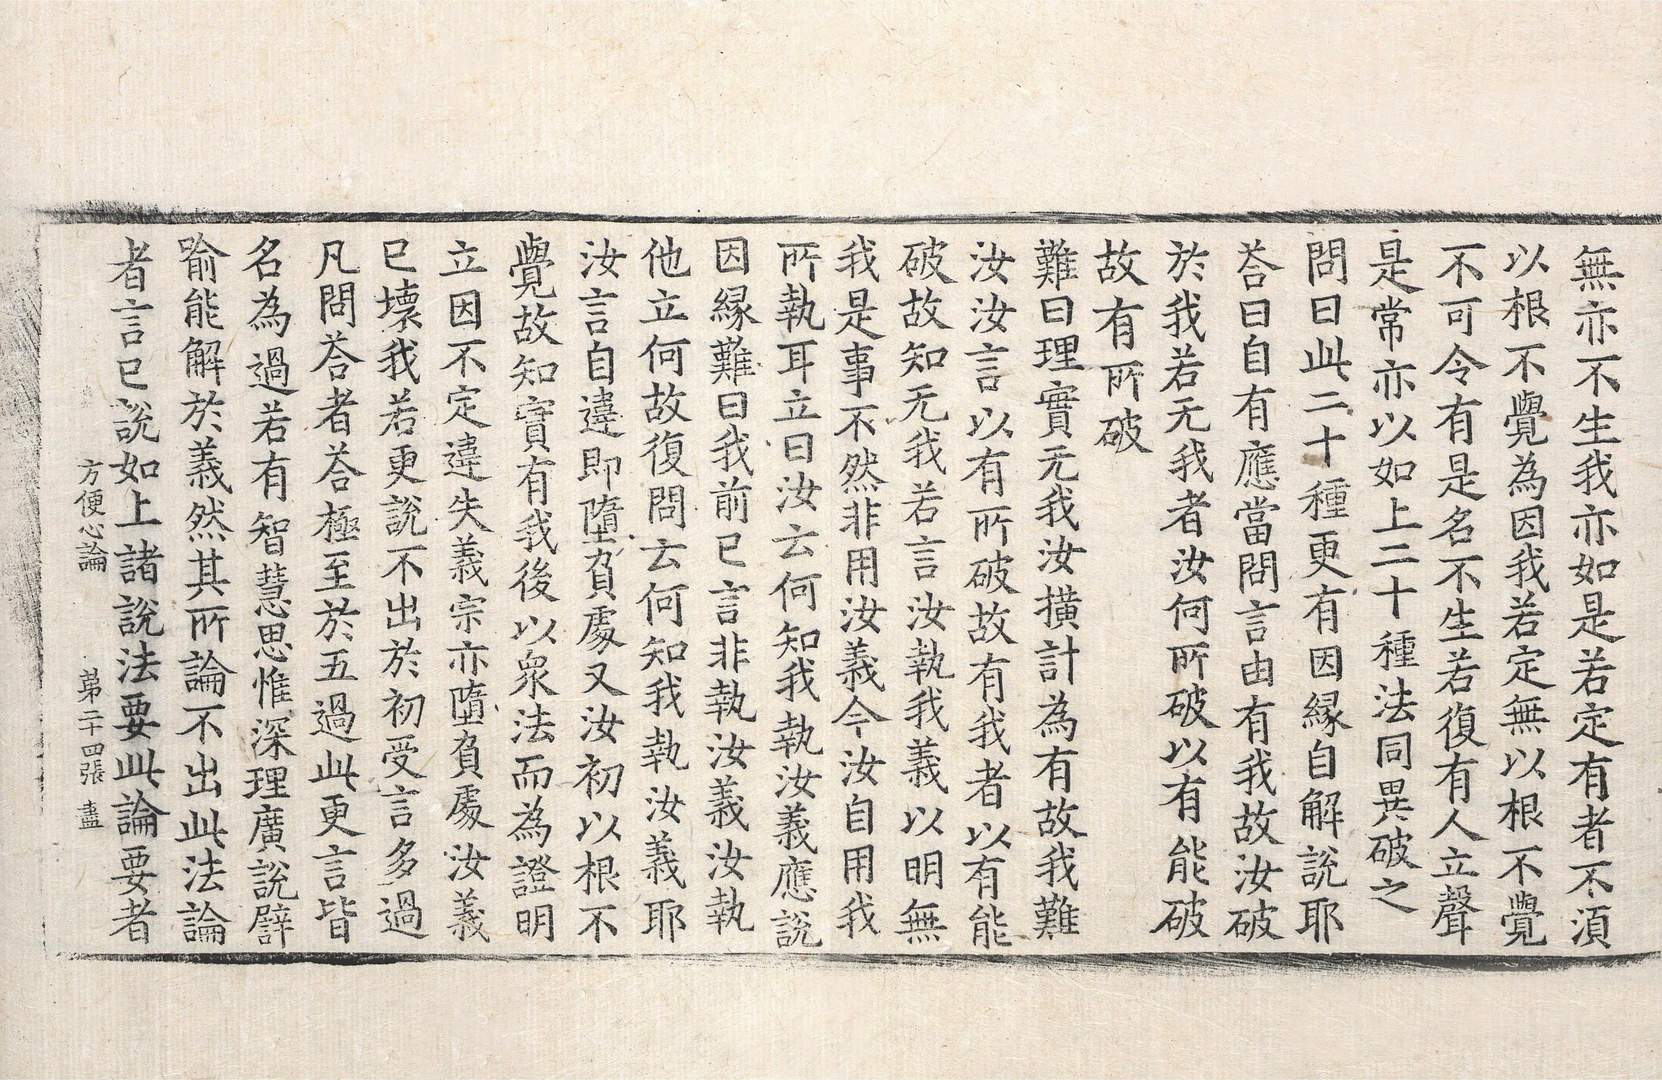 無亦不生我亦如是若定有者不湏
以根不覺為因我若定無以根不覺
不可令有是名不生若復有人立聲
是常亦以如上二十種法同異破之
問曰此二十種更有因緣自解說耶
荅曰自有應當問言由有我故汝破
於我若无我者汝何所破以有能破
故有所破
難曰理實无我汝撗計為有故我難
汝汝言以有所破故有我者以有能
破故知无我若言汝執我義以明無
我是事不然非用汝義今汝自用我
所執耳立曰汝云何知我執汝義應說
因緣難曰我前已言非執汝義汝執
他立何故復問云何知我執汝義耶
汝言自違即墮負處又汝初以根不
覺故知實有我後以衆法而為證明
立因不定違失義宗亦墮負處汝義
已壞我若更說不出於初受言多過
凡問荅者荅極至於五過此更言皆
名為過若有智慧思惟深理廣說譬
喻能解於義然其所論不出此法論
者言已說如上諸說法要此論要者
方便心論 第二十四張 盖